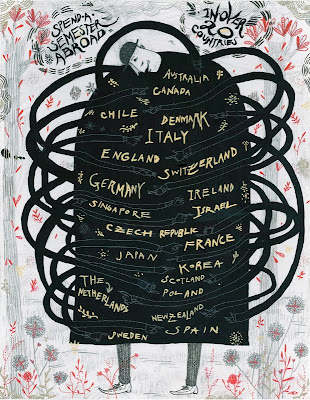 SPEND·A·
SEMESTER
ABROAD
IN OVER
20
COUNTRIES
AUSTRALIA
CANADA
CHILE
DENMARK
ITALY
ENGLAND
SWITZERLAND
GERMANY
IRELAND
SINGAPORE
ISRAEL
CZECH REPUBLIC
FRANCE
JAPAN
KOREA
SCOTLAND
THE
NETHERLANDS
POLAND
NEW ZEALAND
SWEDEN
SPAIN